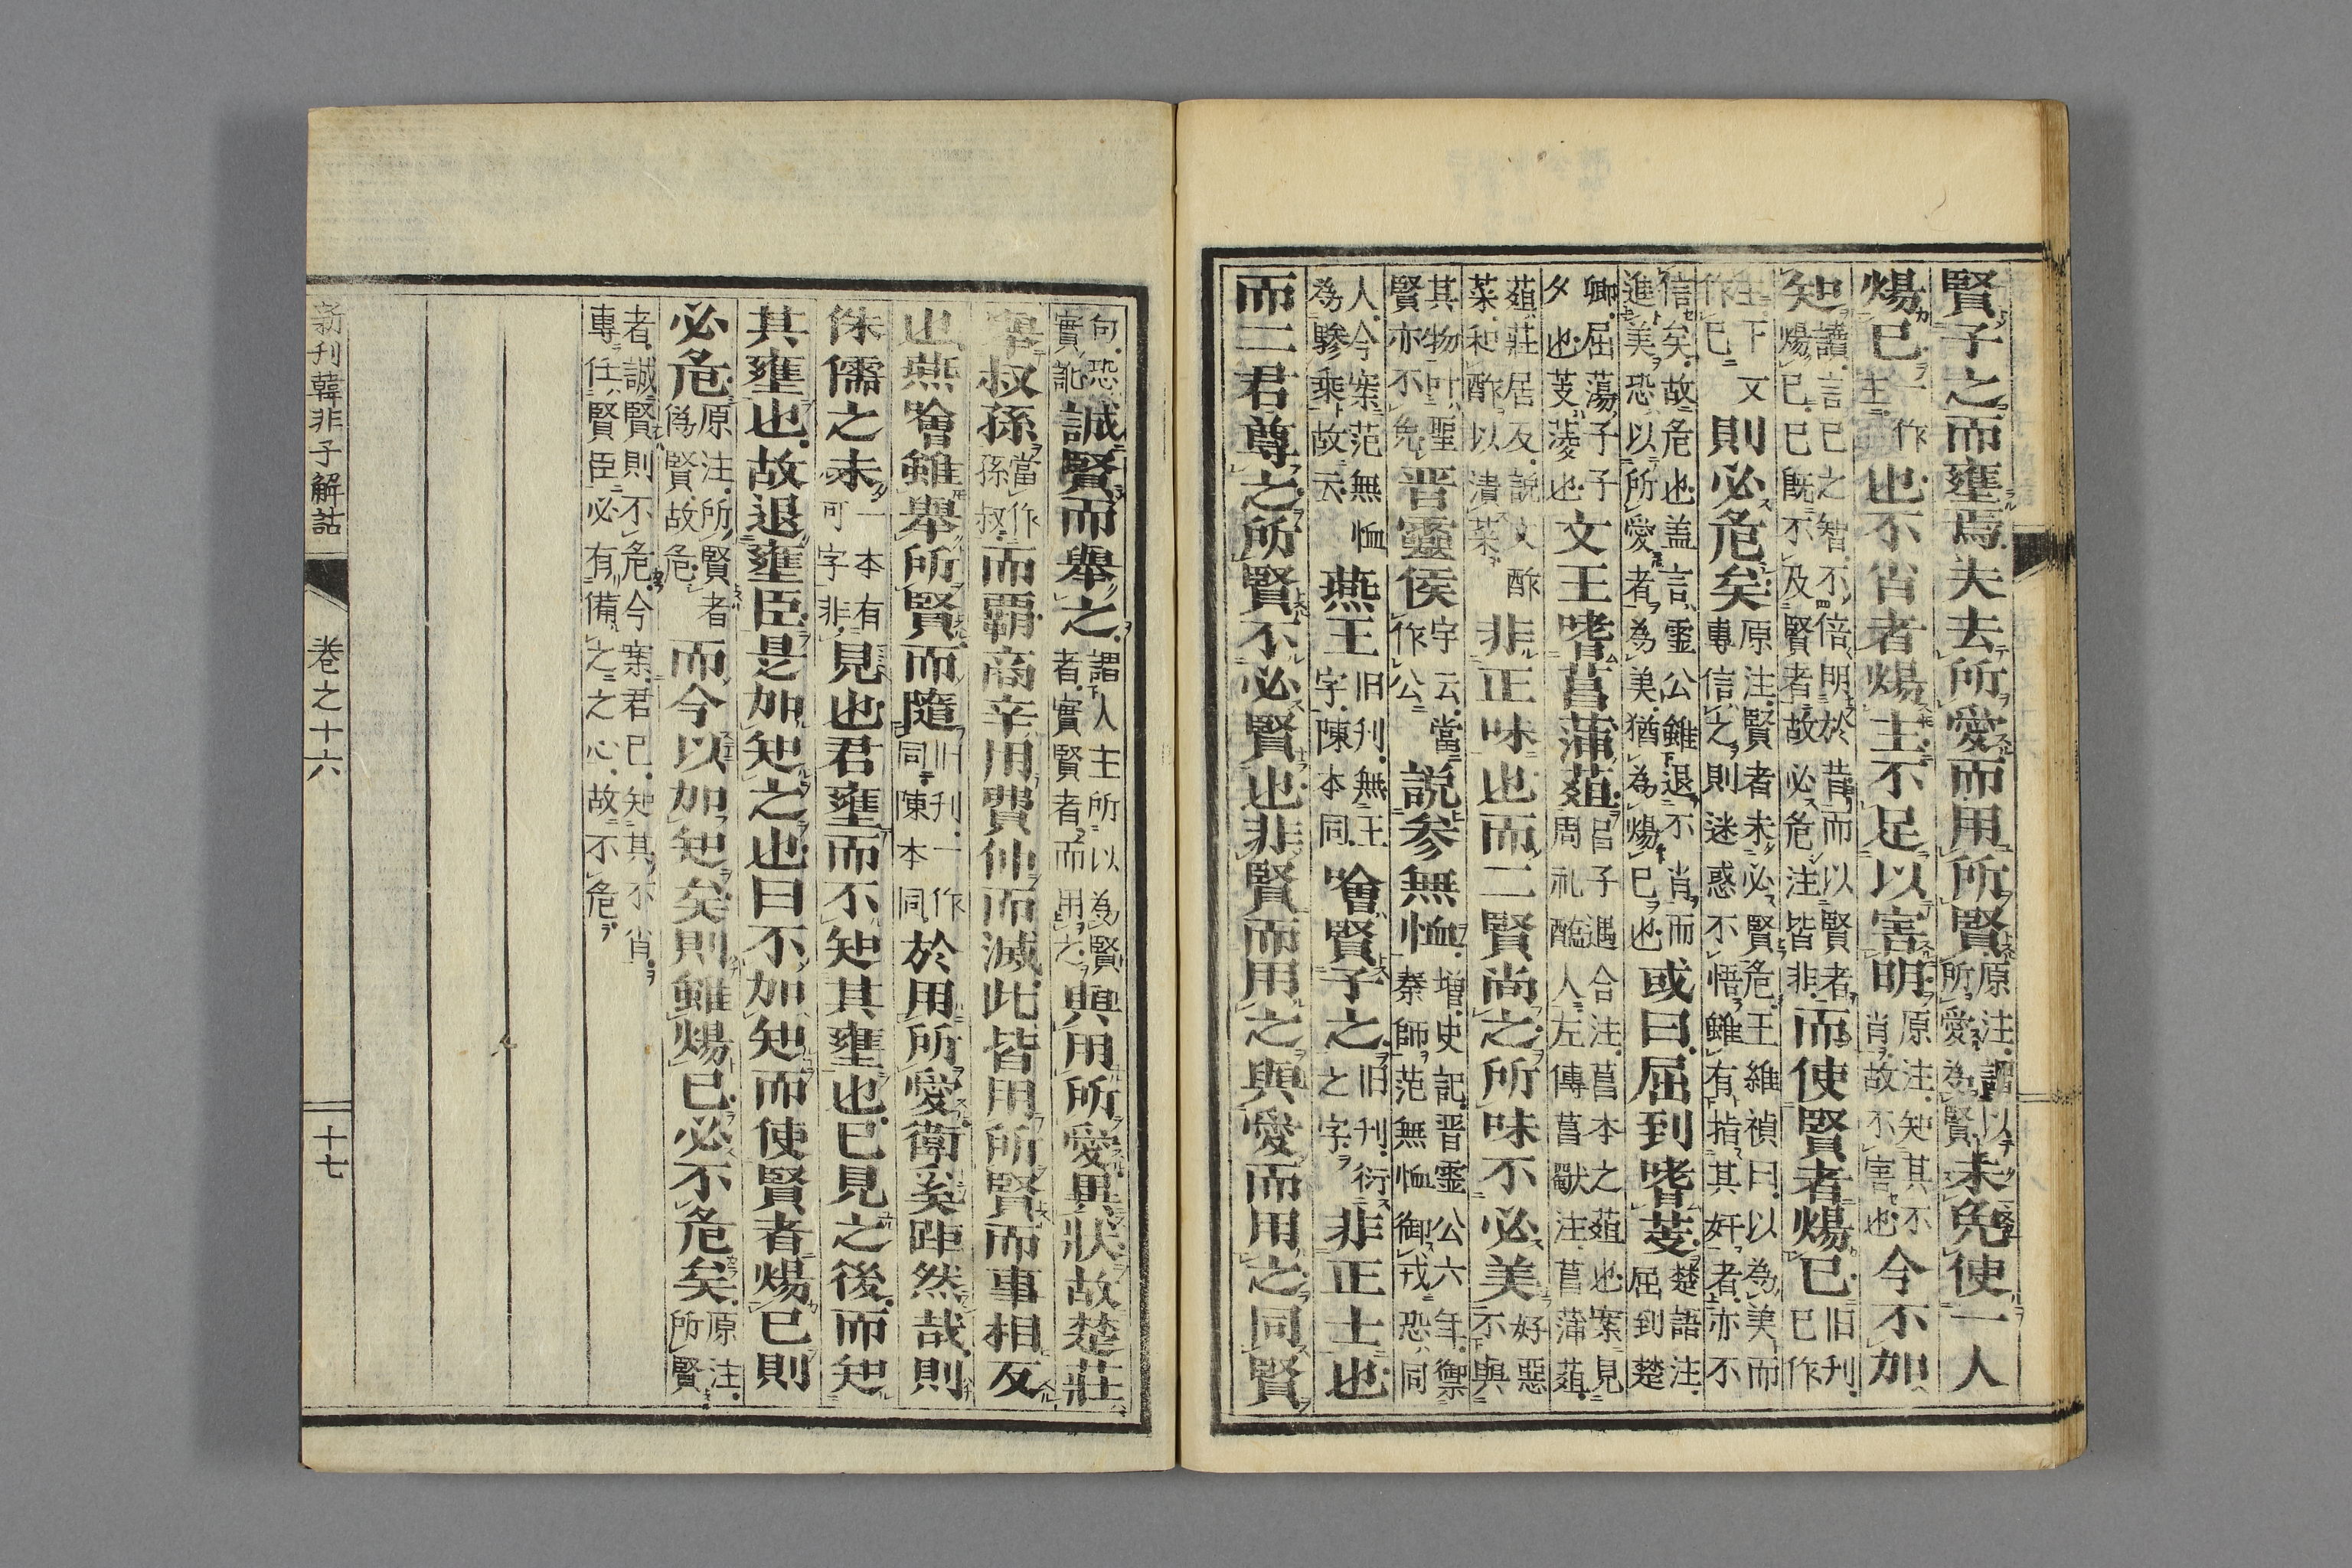 賢子之而壅焉夫去所愛而用所賢原注謂以所愛為賢未免使一人
煬己一作主也不肖者煬主不足以害明原注知其不肖故不害也今不加
知讀言己之智不倍明於昔而以賢者煬己己既不及賢者故必危注皆非而使賢者煬己旧刊己作
主下文作己則必危矣原注賢者未必賢危王維禎曰以為美而專信之則迷惑不悟雖有指其奸者亦不
信矣故危也盖言靈公雖退不肖而進美恐以所愛者為美猶為煬己也或曰屈到嗜芰楚語注屈到楚
卿屈蕩子子夕也芰菱也文王嗜菖蒲葅呂子遇合注菖本之葅也案見周礼醢人左傳菖歜注菖蒲葅
葅莊居反説文酢菜和酢以漬菜非正味也而二賢尚之所味不必美好惡不與
其物叶聖賢亦不免晋靈侯字云當作公説参無恤增史記晋靈公六年禦秦師范無恤御戎恐同
人今案范無恤為驂乗故云燕王旧刊無王字陳本同噲賢子之旧刊衍之字非正士也
而二君尊之所賢不必賢也非賢而用之與愛而用之同賢
句恐實訛誠賢而舉之謂人主所以為賢者實賢者而用之與用所愛異狀故楚莊
舉叔孫當作孫叔而覇商辛用費仲而滅此皆用所賢而事相反
也燕噲雖舉所賢而隨旧刊一作同陳本同於用所愛衛奚距然哉則
侏儒之未一本有可字非見也君壅而不知其壅也已見之後而知
其壅也故退壅臣是加知之也曰不加知而使賢者煬己則
必危原注所賢者僞賢故危而今以加知矣則雖煬己必不危矣原注所賢
者誠賢則不危今案君已知其不肖專任賢臣必有備之之心故不危
新刊韓非子解詁
卷之十六
十七